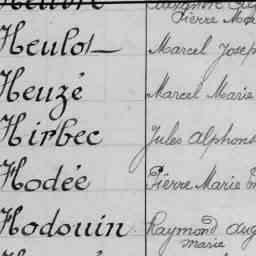 Pierre Mar
Heulot Marcel Josep
Heuzé Marcel Marie
Hirbec Jules Alphons
Hodée Pierre Marie
Hodouin Raymond Aug
Marie